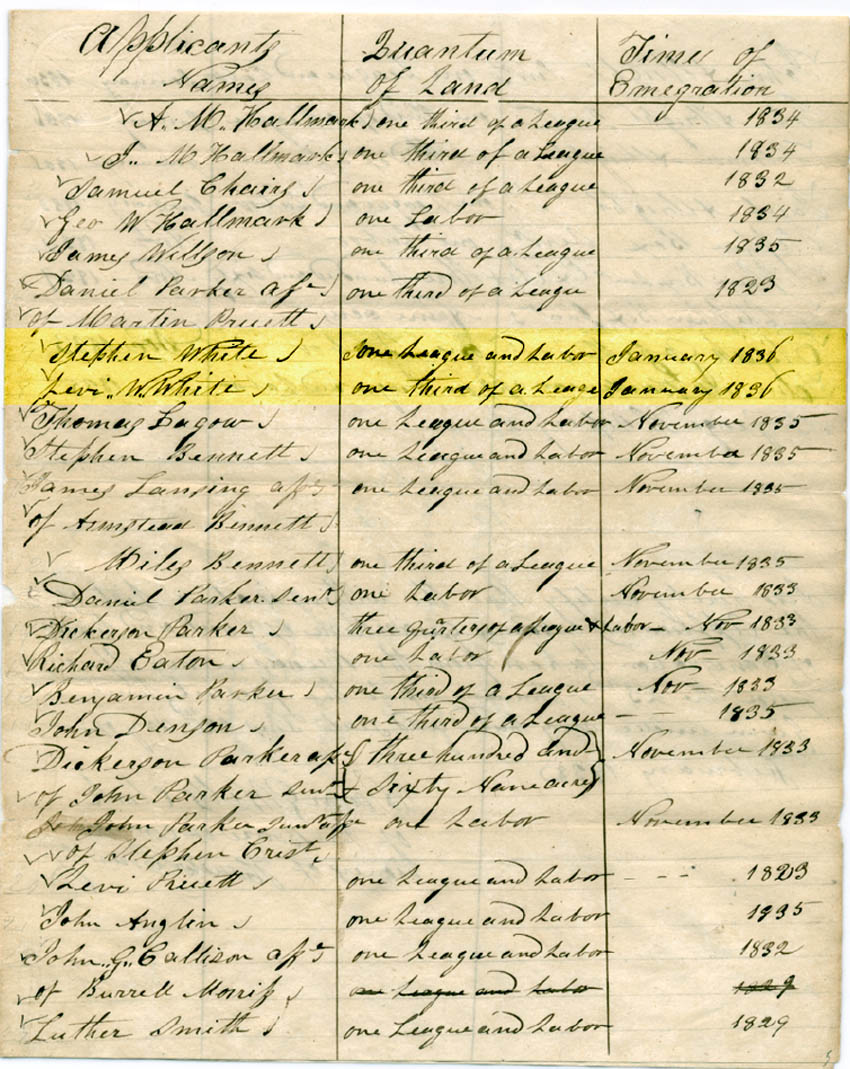 Applicants Quantum Time of
Names of Land Emegration
A. M. Hallmark one third of a League 1834
J. M Hallmark one third of a League 1834
Samuel Chairs one third of a League 1832
Geo W Hallmark one Labor 1834
James Willson one third of a League 1835
Daniel Parker ass^e one third of a League 1823
of Martin Pruett
Stephen White one League and Labor January 1836
Levi. W. White one third of a Leage January 1836
Thomas Lagow one League and Labor November 1835
Stephen Bennett one League and Labor November 1835
James Lansing ass^e one League and Labor November 1835
of Armstead Bennett
Miles Bennett one third of a League November 1835
Daniel Parker Senr one Labor November 1833
Dickerson Parker three quarters of a League & Labor - Nov 1833
Richard Eaton one Labor Nov - 1833
Benjamin Parker one third of a League Nov - 1833
John Denson one third of a League - 1835
Dickerson Parker ass^e three hundred and November 1833
of John Parker Senr Sixty Nane acres
John Parker Senr ass^e one Labor November 1833
of Stephen Crist
Levi Pruett one League and Labor - - - 1823
John Anglin one League and Labor 1935
John. G. Callison ass^e one League and Labor 1832
of Burrell Morris one League and Labor 1829
Luther Smith one League and Labor 1829